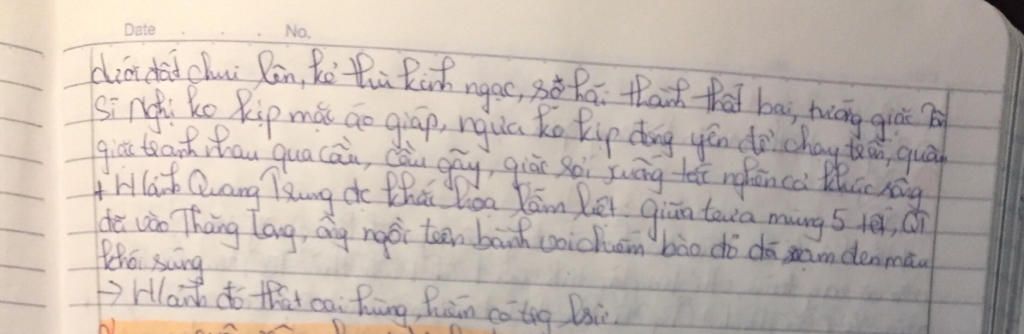 Date No.
dưới đất chui lên, kẻ thù kinh ngạc, sợ hãi thành thất bại, tướng giặc Tôn
Sĩ Nghị ko kịp mặc áo giáp, ngựa ko kịp đóng yên để chạy trốn, quân
giặc tranh nhau qua cầu, cầu gãy, giặc rơi xuống tắc nghẽn cả khúc sông
+ H/ảnh Quang Trung đc khắc họa lẫm liệt. Giữa trưa mùng 5 tết, QT
đã vào Thăng Long, ông ngồi trên bành voi chiếm bào đỏ đã xám đen màu
khói súng
→ H/ảnh đó thật oai hùng, hiếm có tog lsử.